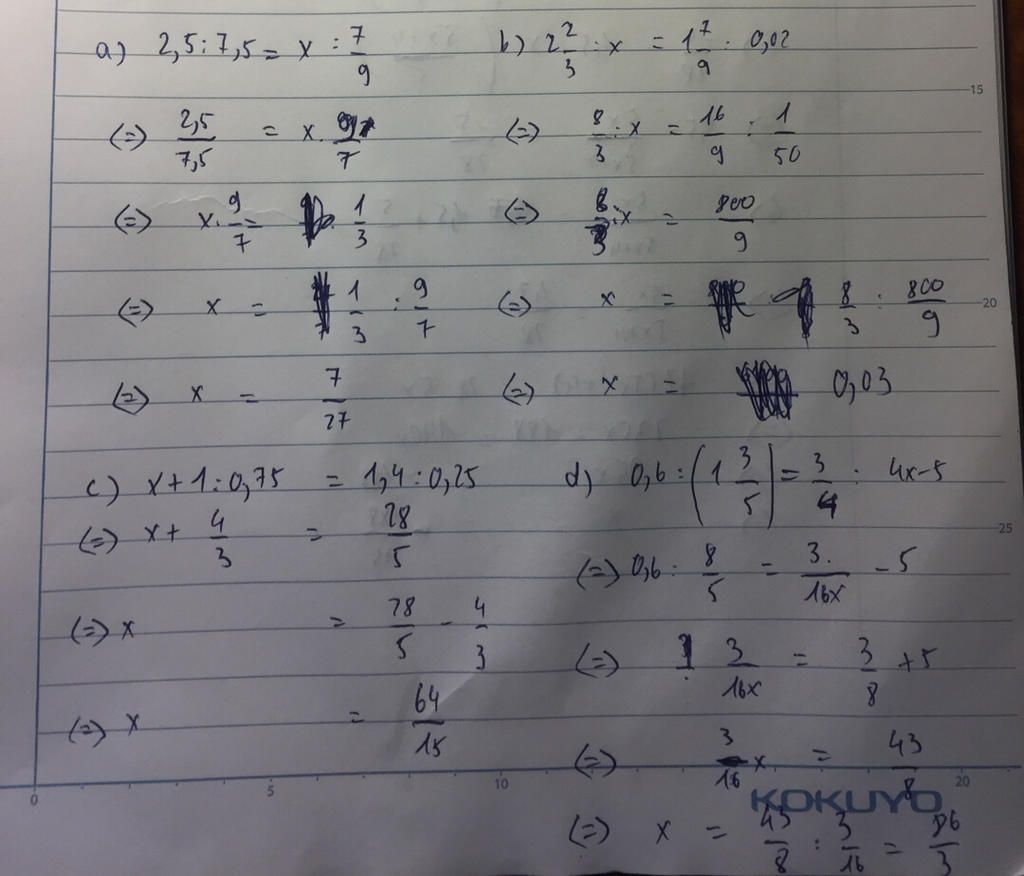 a) 2,5 : 7,5 = x : 7/9
(=) 2,5/7,5 = x . 9/7
(=) x . 9/7 = 1/3
(=) x = 1/3 : 9/7
(=) x = 7/27
b) 2 2/3 : x = 1 7/9 : 0,02
(=) 8/3 : x = 16/9 : 1/50
(=) 8/3 : x = 800/9
(=) x = 8/3 : 800/9
(=) x = 0,03
c) x + 1 : 0,75 = 1,4 : 0,25
(=) x + 4/3 = 28/5
(=) x = 28/5 - 4/3
(=) x = 64/15
d) 0,6 : (1 3/5) = 3/4 : 4x - 5
(=) 0,6 : 8/5 = 3/16x - 5
(=) 3/16x = 3/8 + 5
(=) 3/16 x = 43/8
(=) x = 43/8 : 3/16 = 86/3
15
20
25
0 5 10 20
KOKUYO